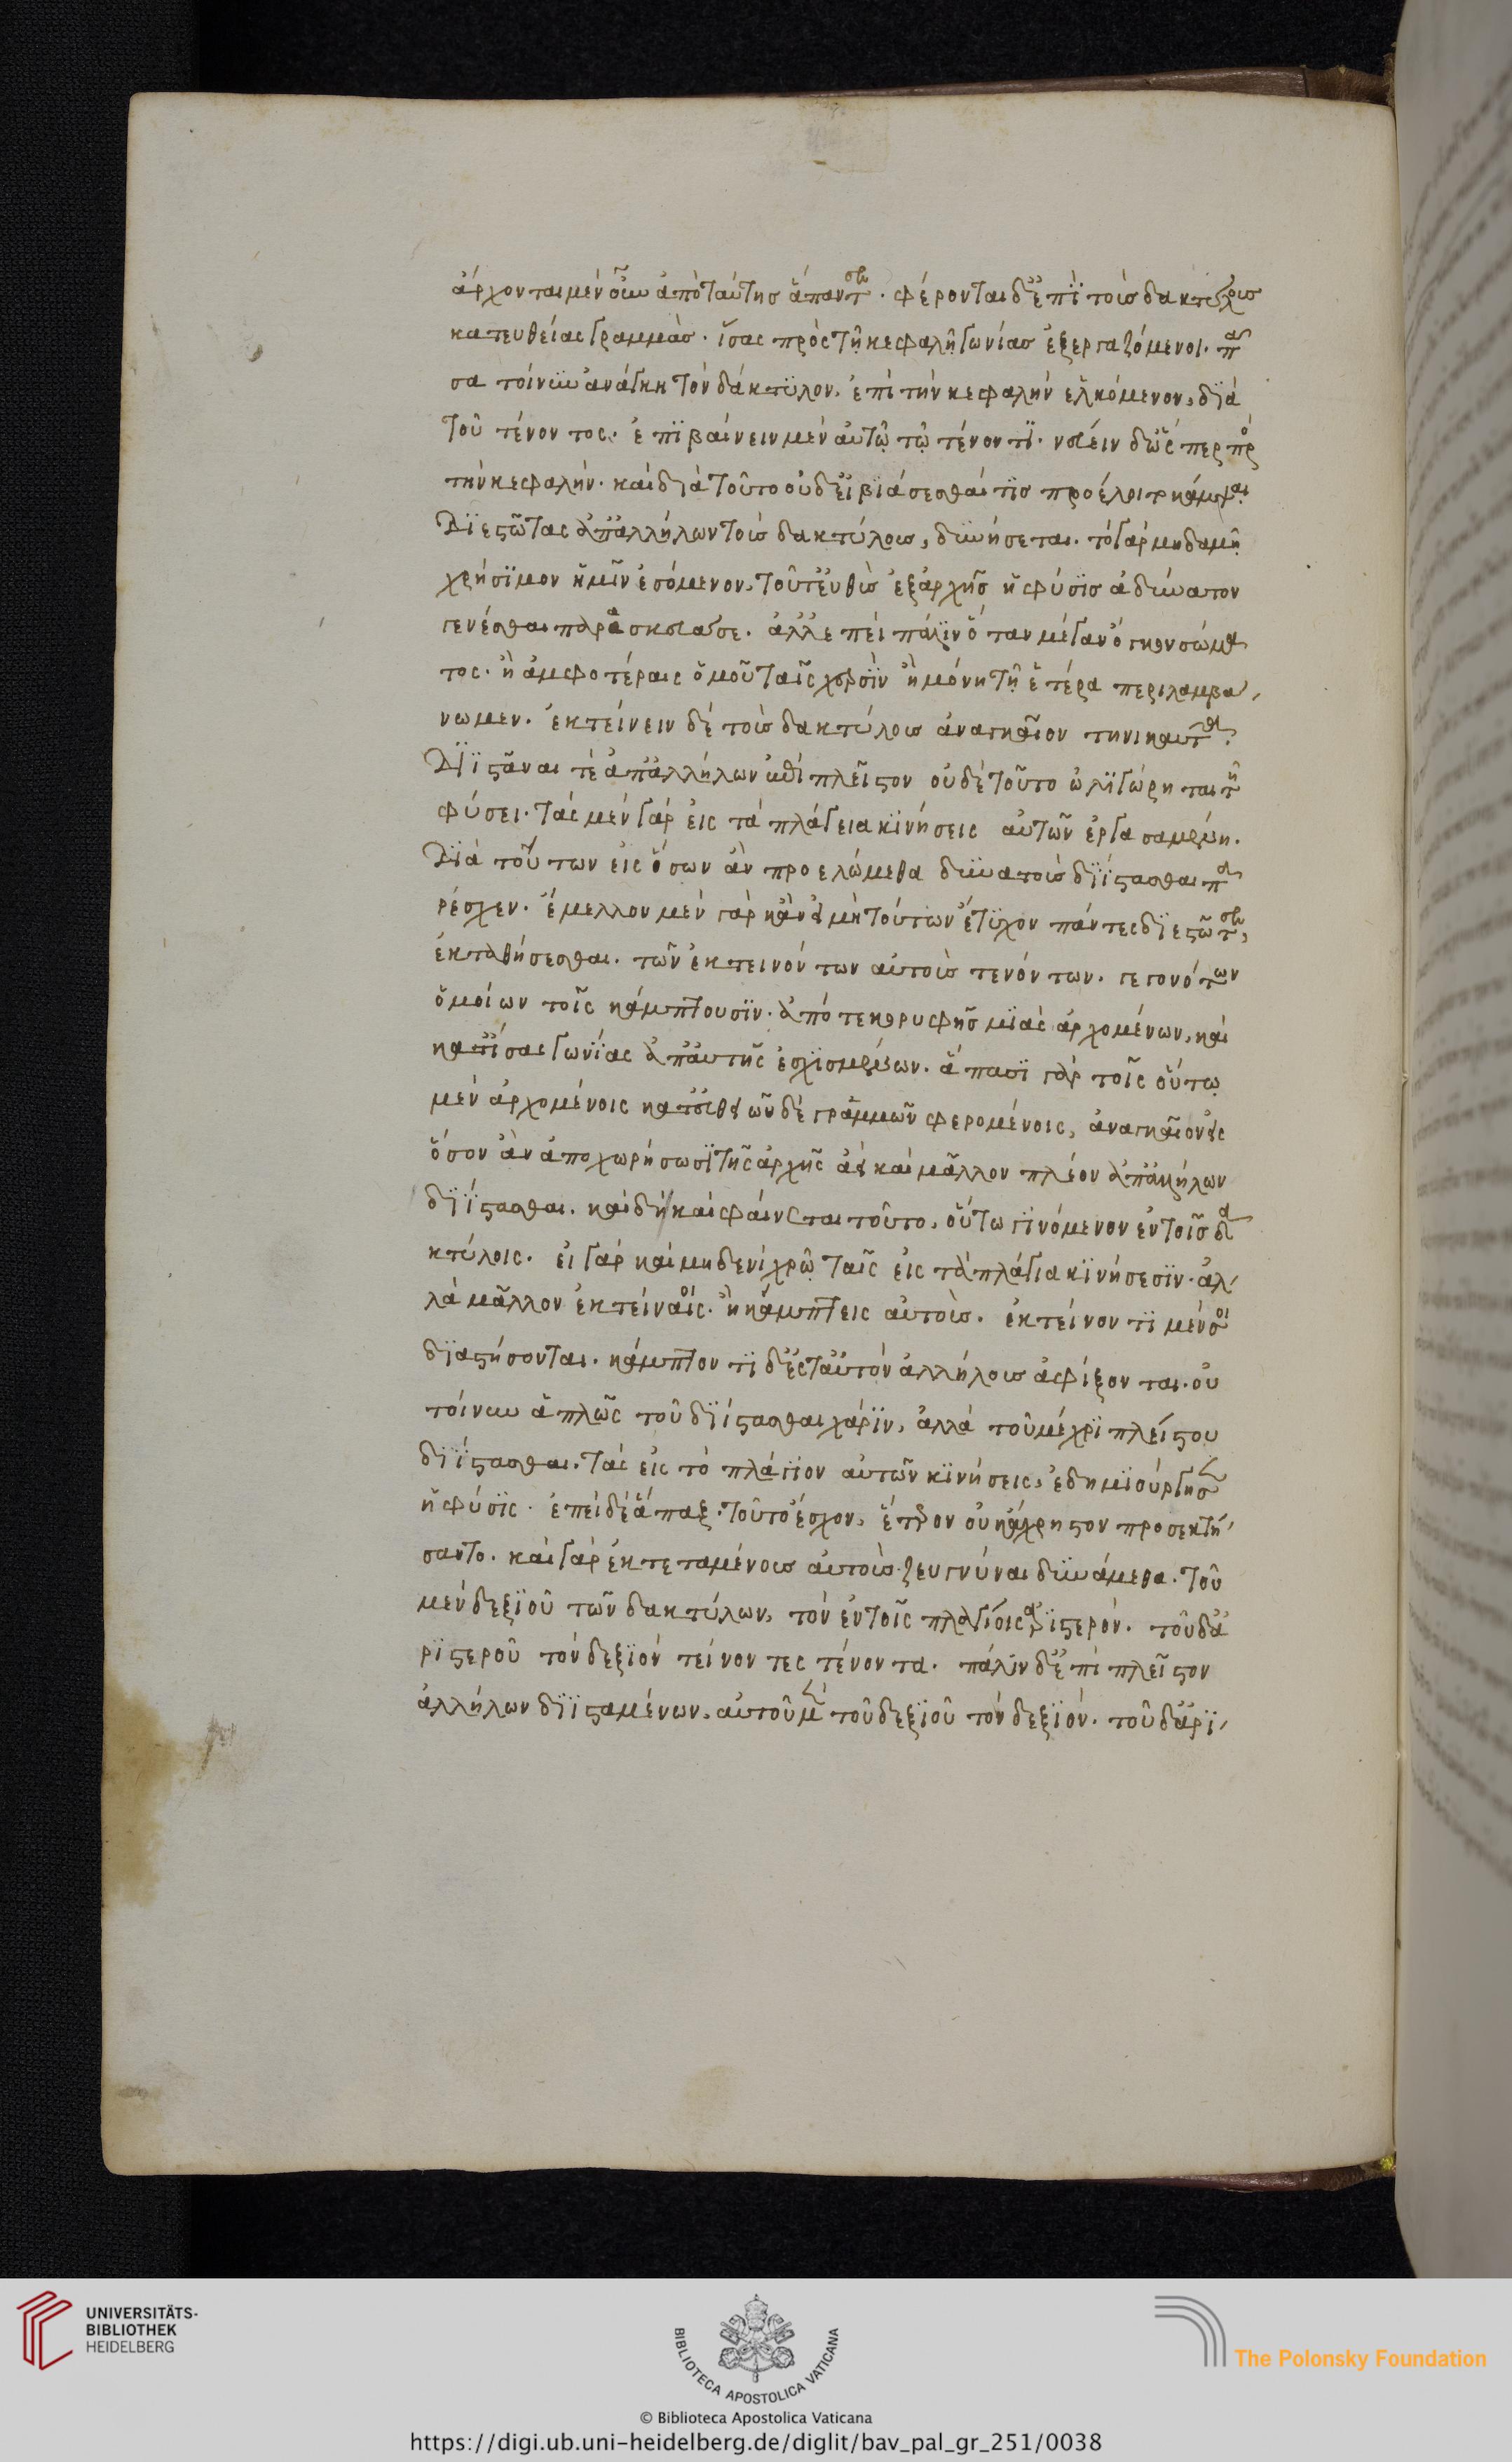 ἄρχονται μὲν οὖν ἀπὸ ταύτησ ἅπαντεσ. φέρονται δ' ἐπὶ τοὺσ δακτύλουσ
κατευθείας γραμμὰσ. ἴσας πρὸς τῆ κεφαλῆ γωνίασ ἐξεργαζόμενοι. πᾶ
σα τοίνυν ἀνάγκη τὸν δάκτυλον, ἐπὶ τὴν κεφαλὴν ἑλκόμενον, διὰ
τοῦ τένοντος. ἐπιβαίνειν μὲν αὐτῶ τῶ τένοντι. νεύειν δ' ὥσπερ πρὸς
τὴν κεφαλήν. καὶ διὰ τοῦτο οὐδ' εἰ βιάσεσθαί τισ προέλοιτο κάμψαι
διεστῶτας ἀπ' ἀλλήλων τοὺσ δακτύλουσ, δυνήσεται. τὸ γὰρ μηδαμῆ
χρήσιμον ἡμῖν ἐσόμενον, τοῦτ' εὐθὺσ ἐξαρχῆσ ἡ φύσισ ἀδύνατον
γενέσθαι παρεσκεύασε. ἀλλ' ἐπεὶ πάλιν ὅταν μέγαν ὄγκον σώμα
τος. ἢ ἀμφοτέραις ὁμοῦ ταῖς χερσὶν ἢ μόνη τῆ ἑτέρα περιλαμβά
νωμεν. ἐκτείνειν δὲ τοὺσ δακτύλουσ ἀναγκαῖον τηνικαῦτα.
διϊστάναι τὲ ἀπ' ἀλλήλων ἐπὶ πλεῖστον οὐδὲ τοῦτο ὠλιγώρηται τῆ
φύσει. τὰς μὲν γὰρ εἰς τὰ πλάγεια κινήσεις αὐτῶν ἐργασαμένη.
διὰ τούτων εἰς ὅσων ἂν προελώμεθα δυνατοὺσ διΐστασθαι πα
ρέσχεν. ἔμελλον μὲν γὰρ κἂν εἰ μὴ τούτων ἔτυχον πάντες διεστῶτεσ,
ἐκταθήσεσθαι. τῶν ἐκτεινόντων αὐτοὺσ τενόντων. γεγονότων
ὁμοίων τοῖς κάμπτουσιν. ἀπό τε κορυφῆσ μιᾶς ἀρχομένων, καὶ
κατ' ἴσας γωνίας ἀπ' αὐτῆς ἐσχισμένων. ἅπασι γὰρ τοῖς οὕτω
μὲν ἀρχομένοις κατ' εὐθειῶν δὲ γραμμῶν φερομένοις, ἀναγκαῖον εἰς
ὅσον ἂν ἀποχωρήσωσι τῆς ἀρχῆς ἀεὶ καὶ μᾶλλον πλέον ἀπ' ἀλλήλων
διΐστασθαι. καὶ δὴ καὶ φαίνεται τοῦτο, οὕτω γινόμενον ἐν τοῖσ δα
κτύλοις. εἰ γὰρ καὶ μηδενὶ χρῶ ταῖς εἰς τὰ πλάγια κινήσεσιν. ἀλ
λὰ μᾶλλον ἐκτείναις. ἢ κάμπτεις αὐτοὺσ. ἐκτείνοντι μέν σοι
διαστήσονται. κάμπτοντι δ' ἐς ταὐτὸν ἀλλήλοισ ἀφίξονται. οὐ
τοίνυν ἁπλῶς τοῦ διΐστασθαι χάριν, ἀλλὰ τοῦ μέχρι πλείστου
διΐστασθαι. τὰς εἰς τὸ πλάγιον αὐτῶν κινήσεις, ἐδημιούργησεν
ἡ φύσις. ἐπεὶ δὲ ἅπαξ τοῦτο ἔσχον, ἕτερον οὐκ ἄχρηστον προσεκτή
σαντο. καὶ γὰρ ἐκτεταμένουσ αὐτοὺσ ζευγνύναι δυνάμεθα. τοῦ
μὲν δεξιοῦ τῶν δακτύλων, τὸν ἐν τοῖς πλαγίοις ἀριστερόν. τοῦ δ' ἀ
ριστεροῦ τὸν δεξιὸν τείνοντες τένοντα. πάλιν δ' ἐπὶ πλεῖστον
ἀλλήλων διϊσταμένων, αὐτοῦ μὲν τοῦ δεξιοῦ τὸν δεξιόν. τοῦ δ' ἀρι
UNIVERSITÄTS-
BIBLIOTHEK
HEIDELBERG
BIBLIOTECA APOSTOLICA VATICANA
The Polonsky Foundation
© Biblioteca Apostolica Vaticana
https://digi.ub.uni-heidelberg.de/diglit/bav_pal_gr_251/0038